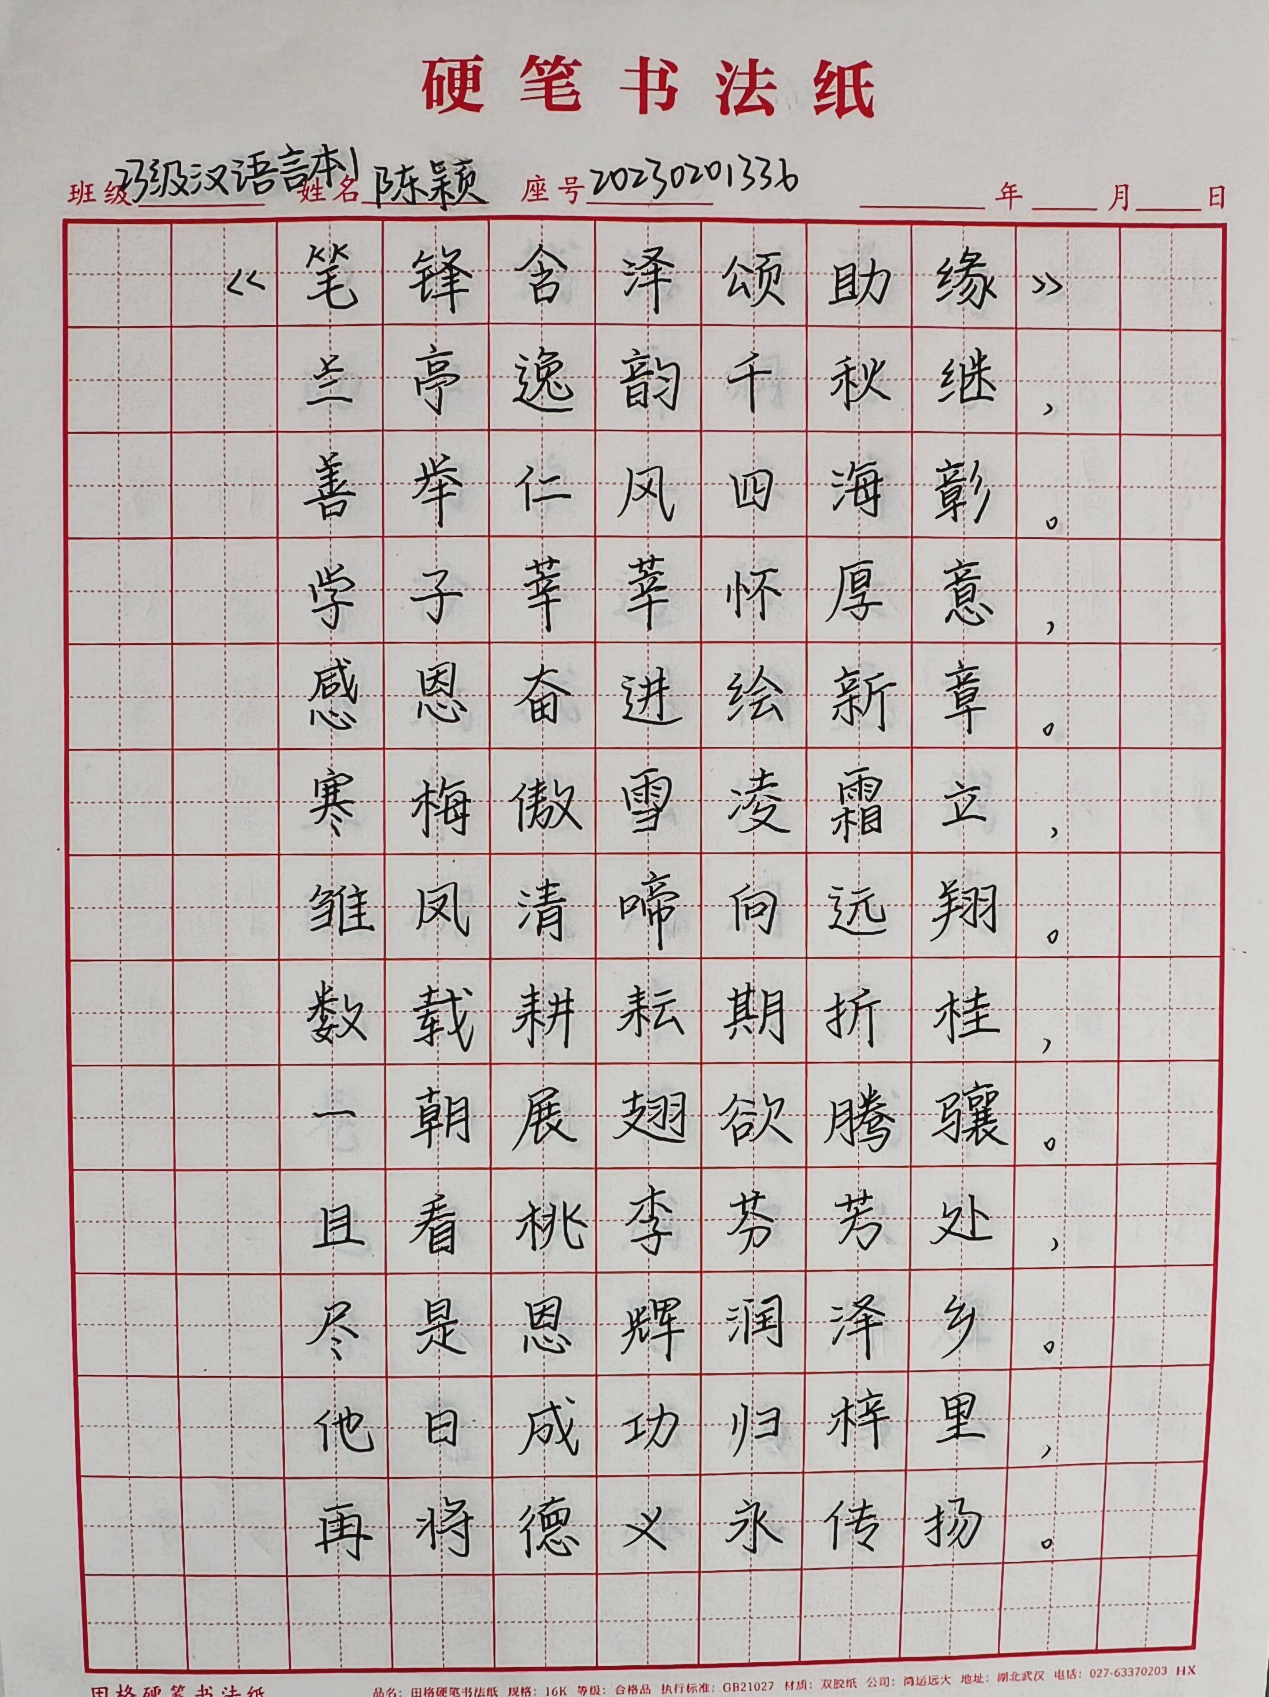 硬笔书法纸
班级 23级汉语言本1 姓名 陈颖 座号 20230201336 年 月 日
《笔锋含泽颂助缘》
兰亭逸韵千秋继，
善举仁风四海彰。
学子莘莘怀厚意，
感恩奋进绘新章。
寒梅傲雪凌霜立，
雏凤清啼向远翔。
数载耕耘期折桂，
一朝展翅欲腾骧。
且看桃李芬芳处，
尽是恩辉润泽乡。
他日成功归梓里，
再将德义永传扬。
田格硬笔书法纸 品名：田格硬笔书法纸 规格：16K 等级：合格品 执行标准：GB21027 材质：双胶纸 公司：鸿运远大 地址：湖北武汉 电话：027-63370203 HX